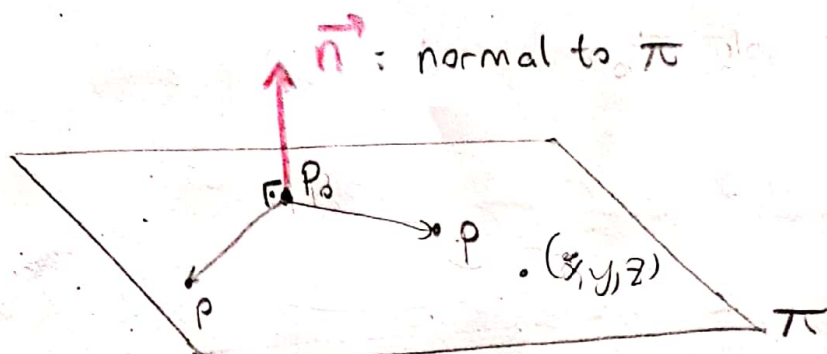 n : normal to π
P₀
P
. (x,y,z)
P
π